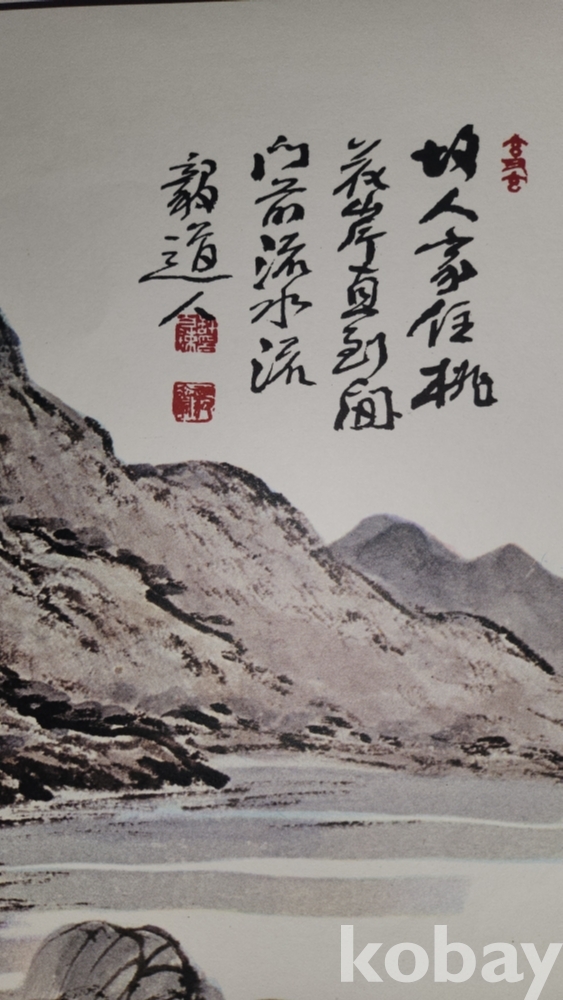 故人家住桃
花岸直到
門前流水流
毅道人
kobay